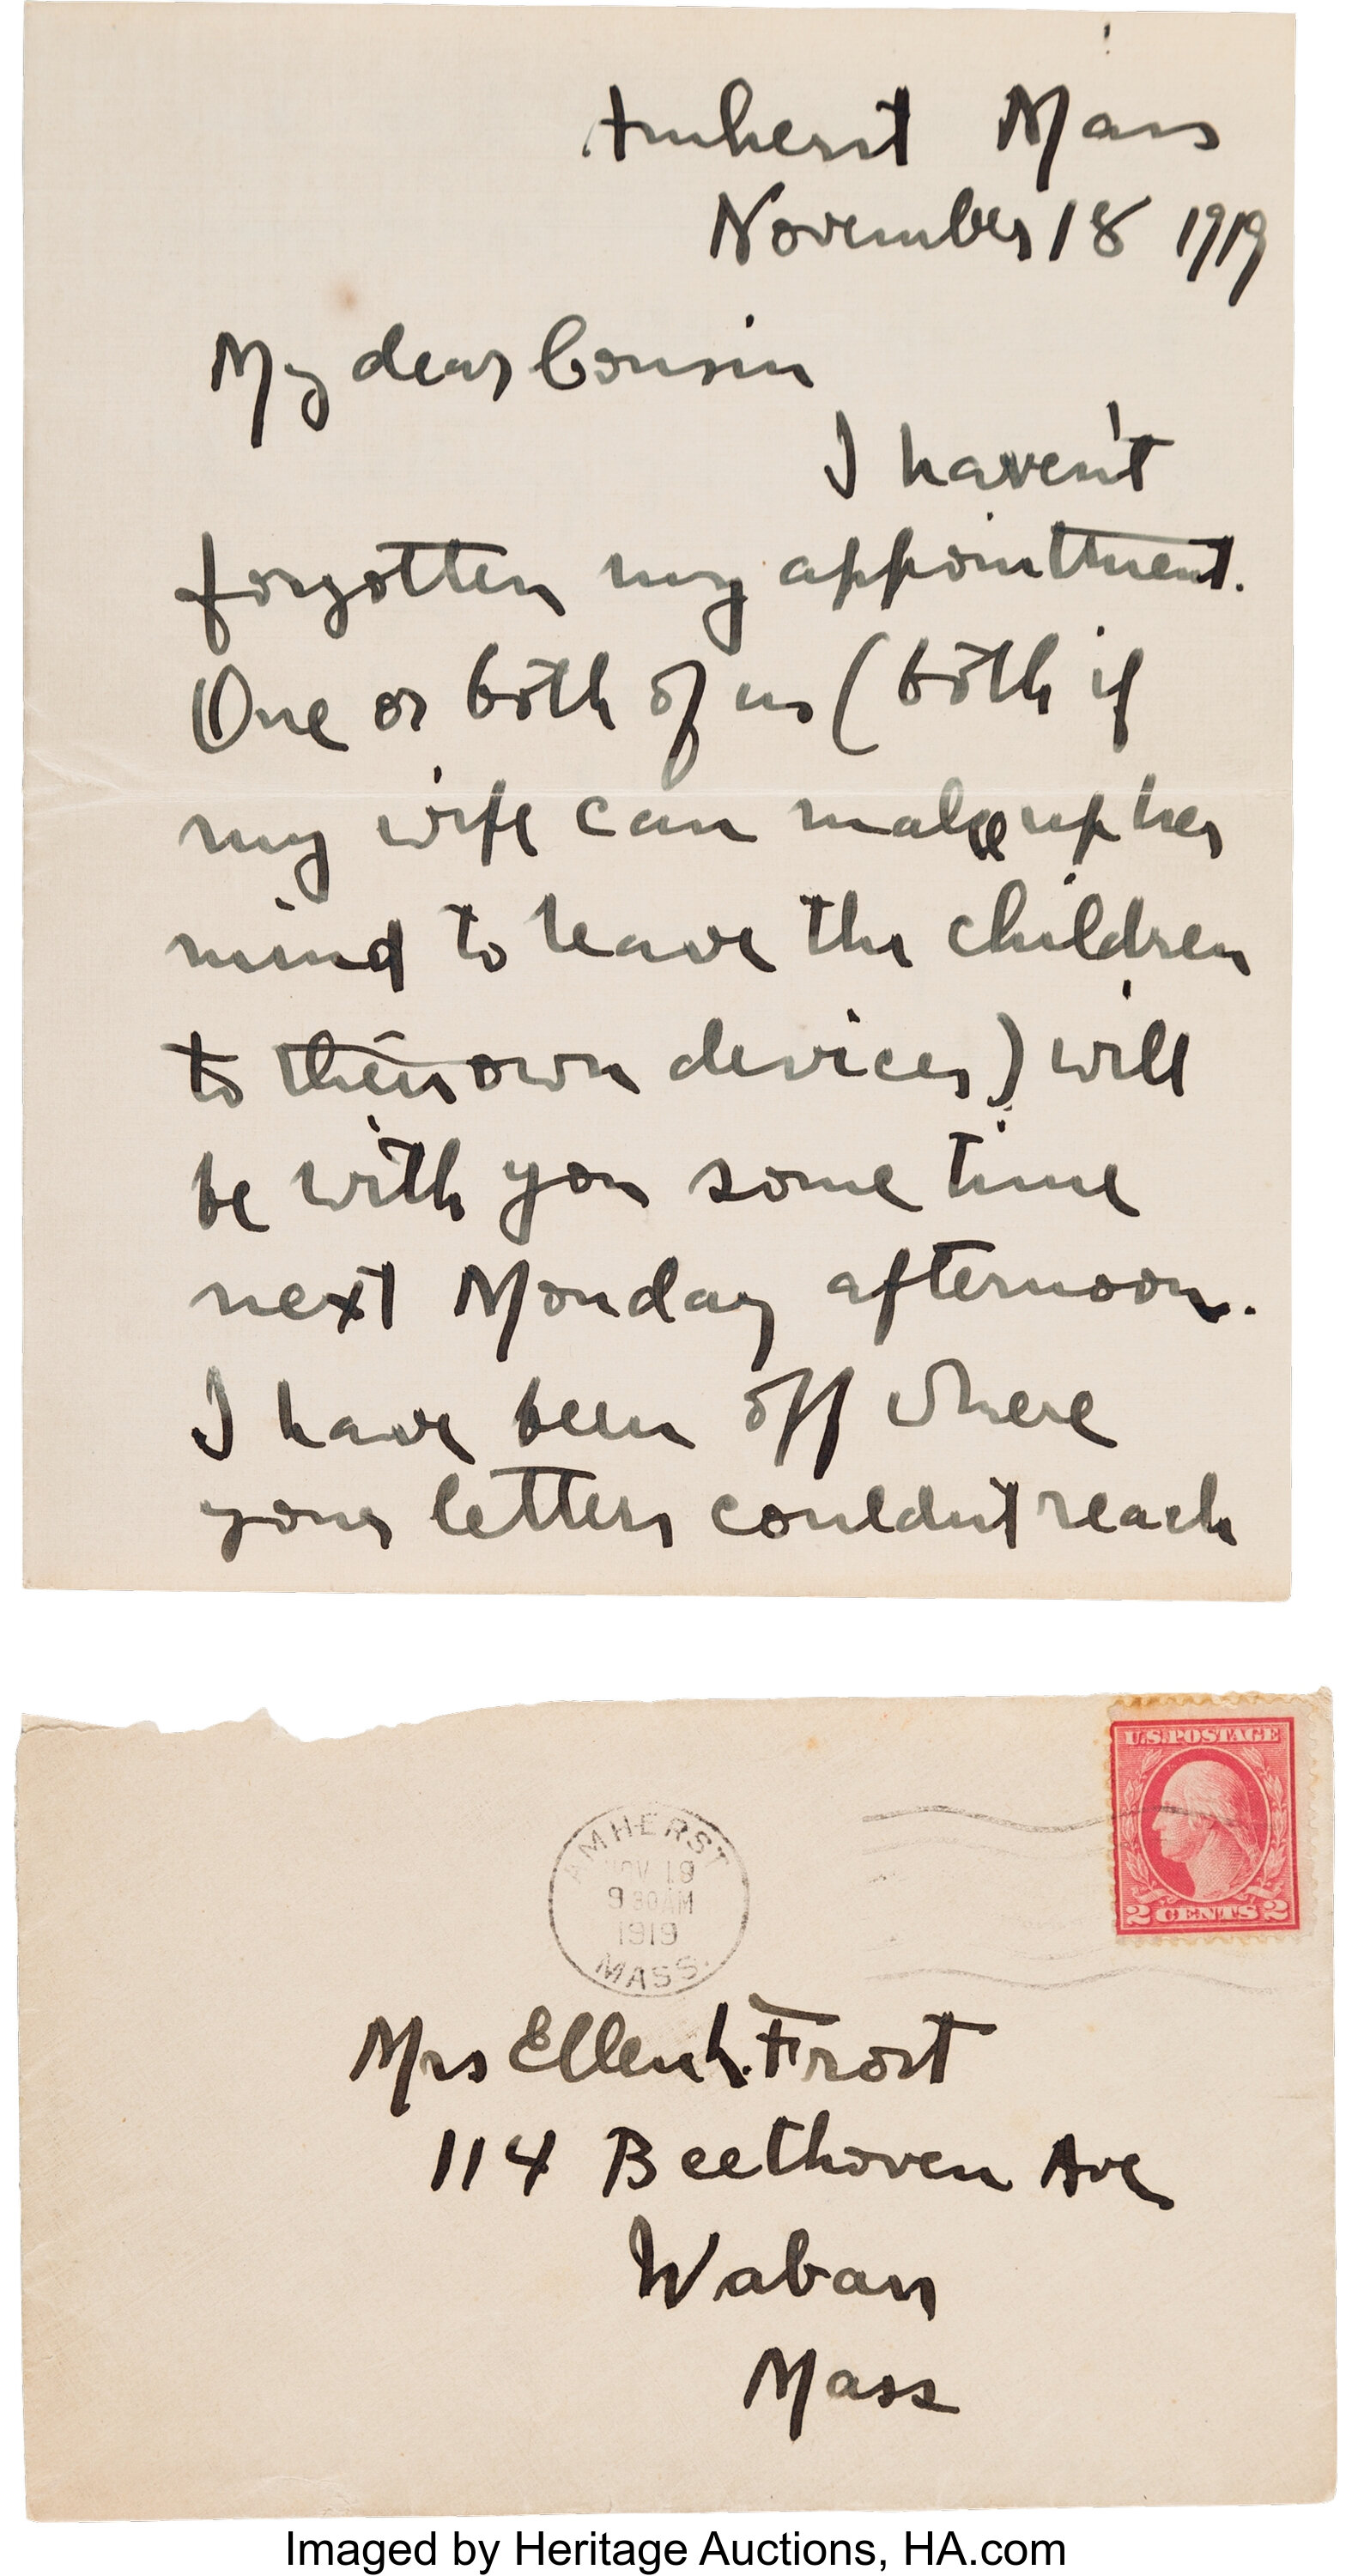 Amherst Mass
November 18 1919
My dear Cousin
I haven't
forgotten my appointment.
One or both of us (both if
my wife can make up her
mind to leave the children
to their own devices) will
be with you some time
next Monday afternoon.
I have been off where
your letters couldn't reach
U.S. POSTAGE
2 CENTS 2
AMHERST
NOV 19
9 30 AM
1919
MASS.
Mrs Ellen L. Frost
114 Beethoven Ave
Waban
Mass
Imaged by Heritage Auctions, HA.com